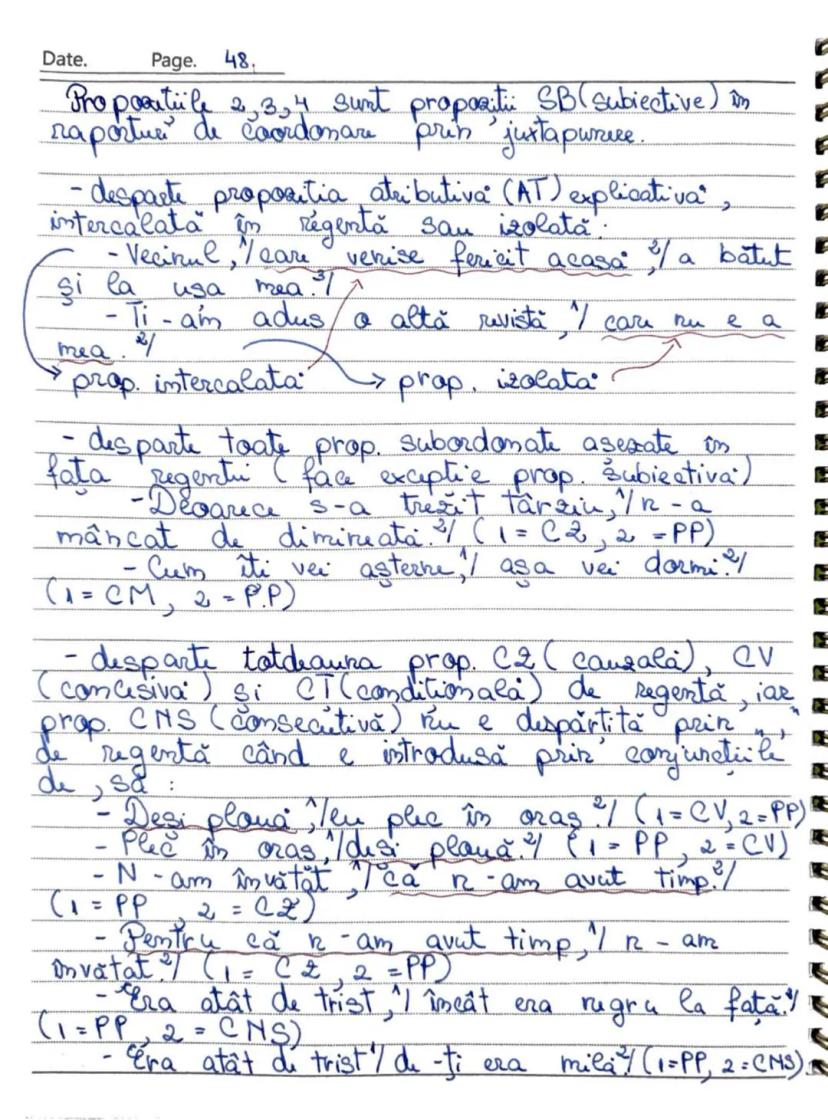 Date. Page. 48.
Propozitiile 2,3,4 sunt propozitii SB(subiective) în
raporturi de coordonare prin juxtapunere.
- desparte propozitia atributivă (AT) explicativă,
intercalată în regentă sau izolată:
- Vecinul, 1/ care venise fericit acasă, 2/ a bătut
și la usa mea. 3/
- Ti-am adus o altă revistă, 1/ care nu e a
mea. 2/
prop. intercalată prop. izolată
- desparte toate prop. subordonate asezate în
fața regentei (face exceptie prop. subiectivă)
- Deoarece s-a trezit târziu, 1/ n-a
mâncat de dimineată. 2/ (1 = CZ, 2 = PP)
- Cum îti vei așterne, 1/ așa vei dormi. 2/
(1 = CM, 2 = P.P)
- desparte totdeauna prop. CZ (cauzală), CV
(concesivă) și CT (conditională) de regentă, iar
prop. CNS (consecutivă) nu e despărțită prin „,"
de regentă când e introdusă prin conjuncțiile
de, să:
- Deși plouă, 1/ eu plec în oras. 2/ (1 = CV, 2 = PP)
- Plec în oras, 1/ desi plouă. 2/ (1 = PP, 2 = CV)
- N-am învătăt, 1/ că n-am avut timp. 2/
(1 = PP, 2 = CZ)
- Pentru că n-am avut timp, 1/ n-am
învătat. 2/ (1 = CZ, 2 = PP)
- Era atât de trist, 1/ încât era negru la față. 2/
(1 = PP, 2 = CNS)
- Era atât de trist 1/ de-ți era milă. 2/ (1 = PP, 2 = CNS)